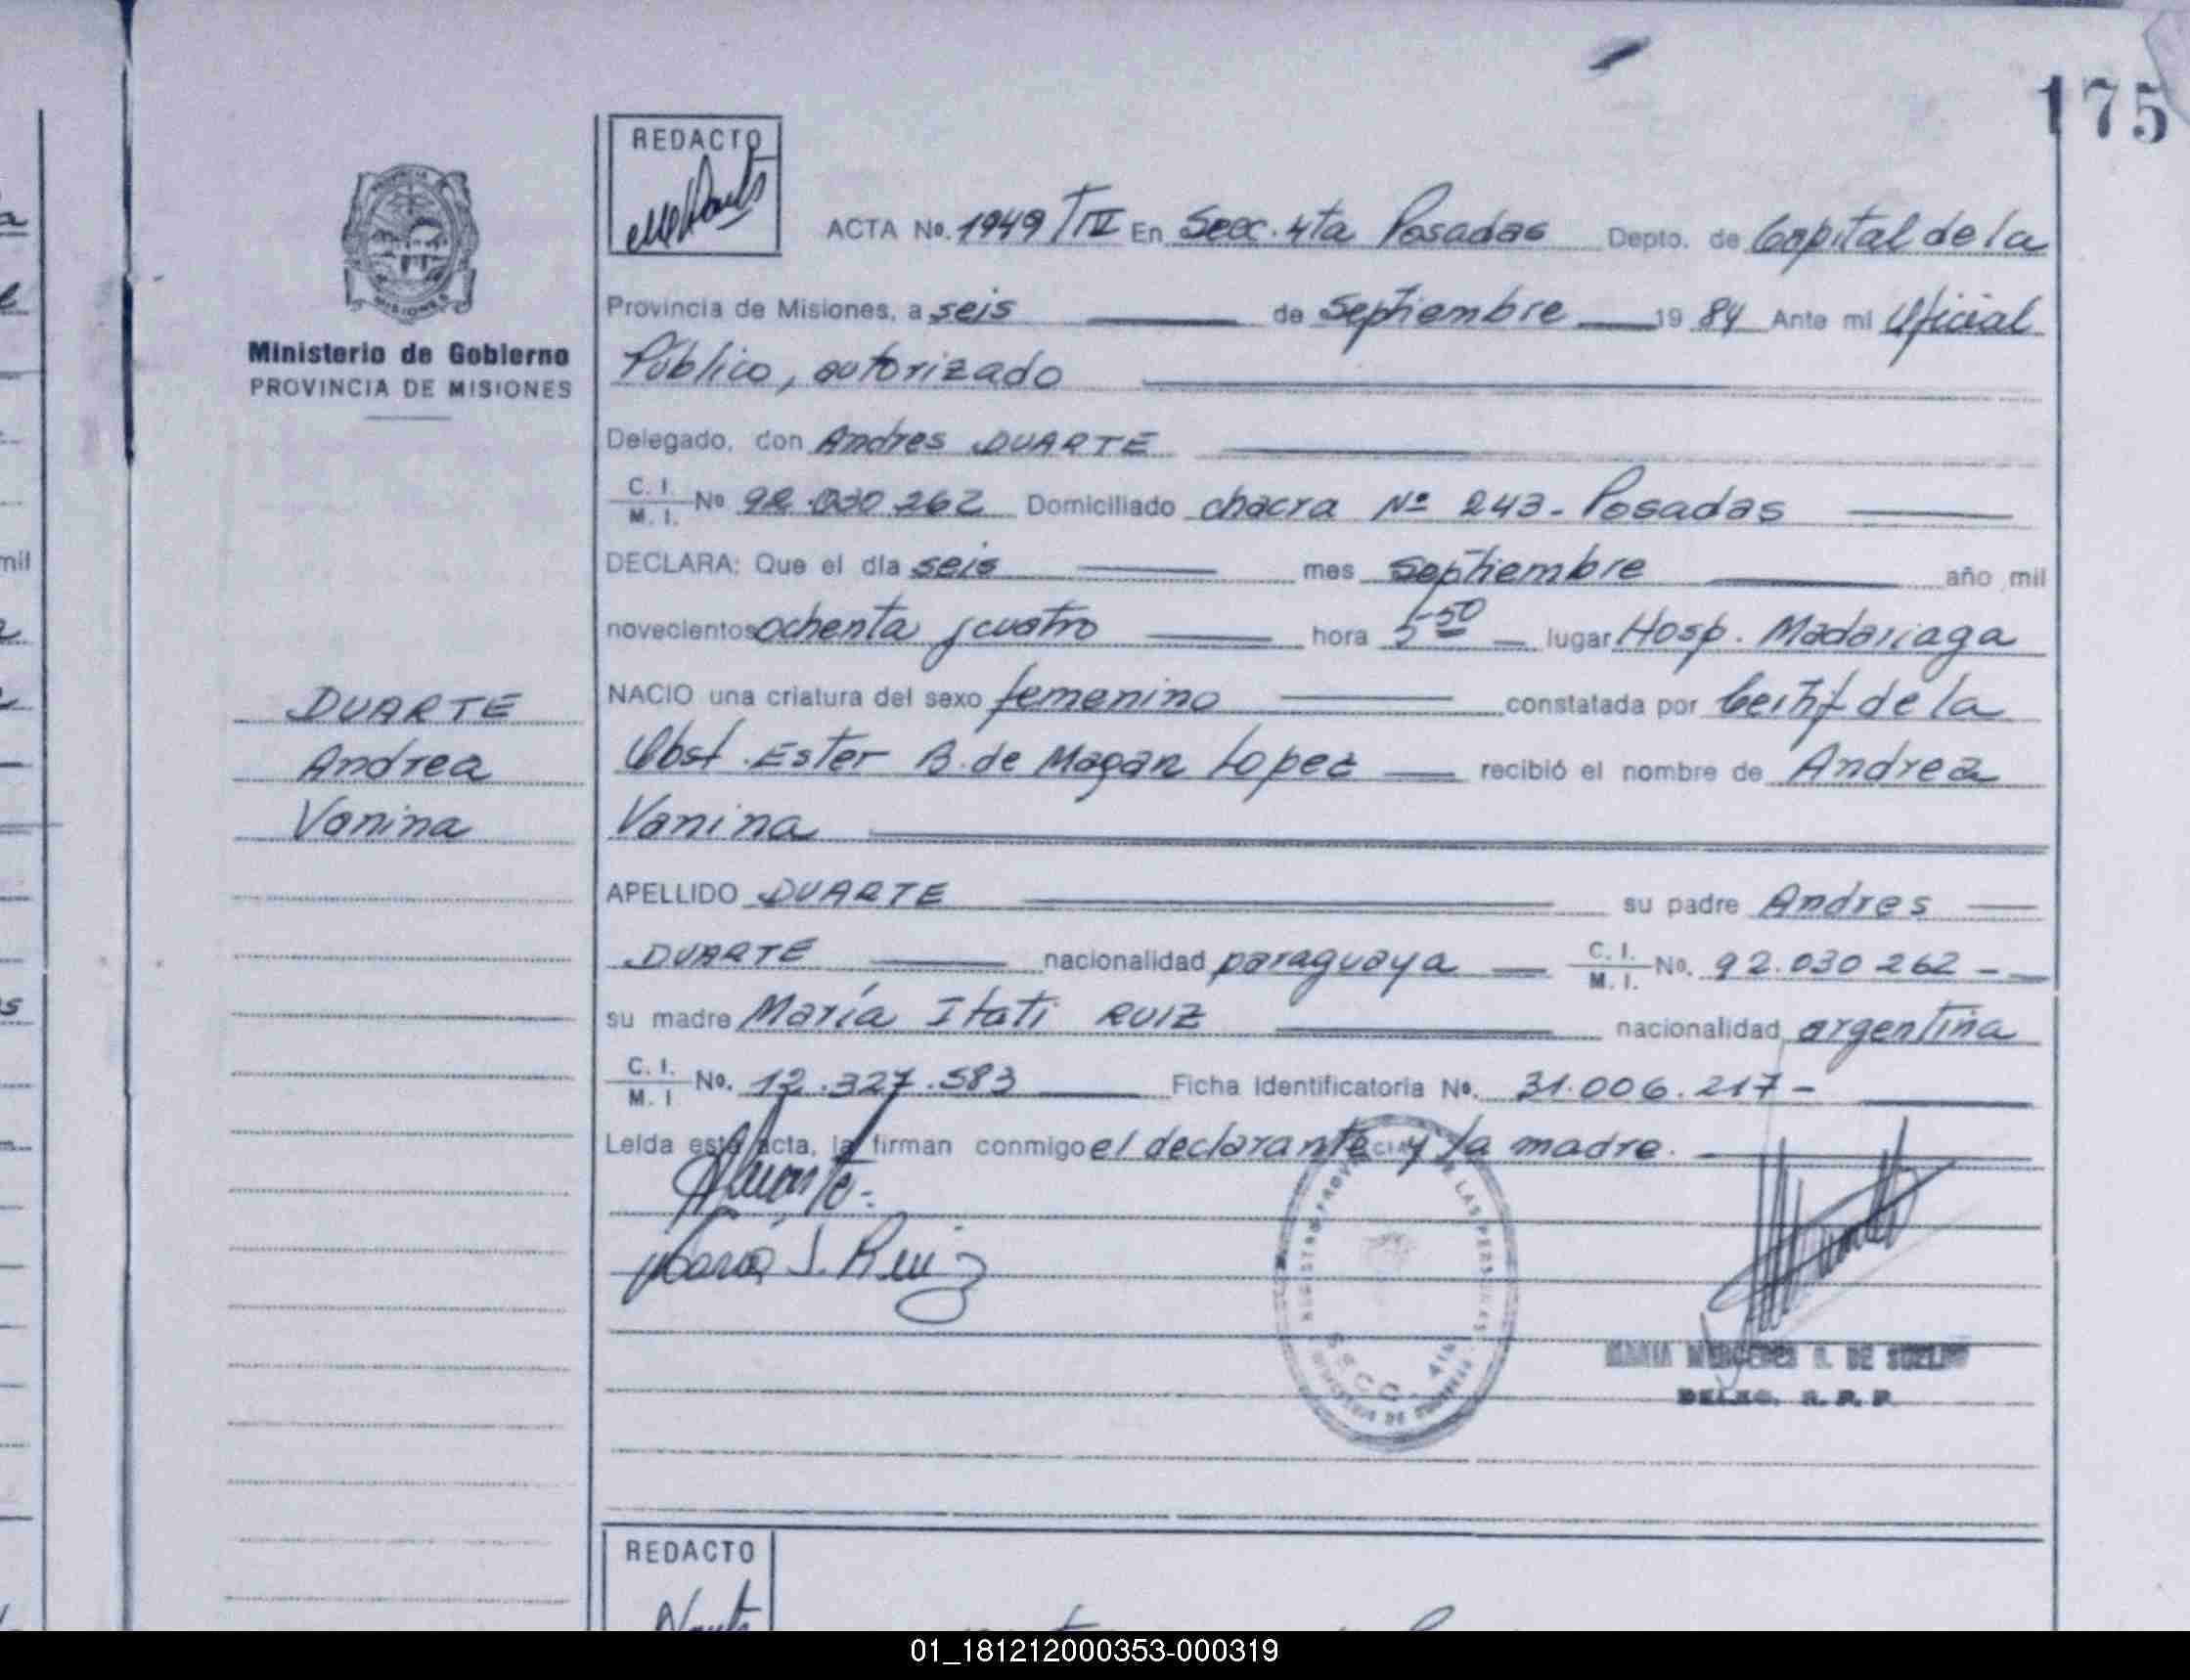 175
REDACTO
ACTA No. 1949 T IV En Secc. 4ta Posadas Depto. de Capital de la
Provincia de Misiones, a seis de Septiembre 1984 Ante mi Oficial
Público, autorizado
Ministerio de Gobierno
PROVINCIA DE MISIONES
Delegado, don Andres DUARTE
C. I.
M. I. No 92.030.262 Domiciliado chacra Nº 243 - Posadas
DECLARA: Que el día seis mes septiembre año mil
novecientos ochenta y cuatro hora 5-50 lugar Hosp. Madariaga
NACIO una criatura del sexo femenino constatada por Certif de la
Obst. Ester B. de Magan Lopez recibió el nombre de Andrea
Vanina
DUARTE
Andrea
Vanina
APELLIDO DUARTE su padre Andres
DUARTE nacionalidad paraguaya C. I. M. I. No. 92.030 262 -
su madre María Itati RUIZ nacionalidad argentina
C. I.
M. I No. 12.327.583 Ficha Identificatoria No. 31.006.217 -
Leída esta acta, la firman conmigo el declarante y la madre.
María I. Ruiz
DE LAS PERSONAS
MARIA MERCEDES
DELEG. R. P. P.
REDACTO
01_181212000353-000319